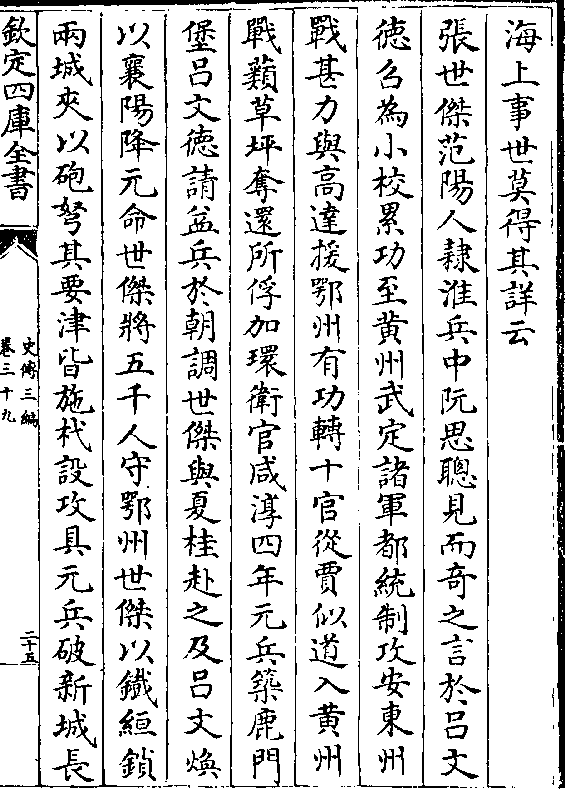 海上事世莫得其詳云
張世傑范陽人隷淮兵中阮思聰見而奇之言於吕文
徳召為小校累功至黄州武定諸軍都統制攻安東州
戰甚力與高達援鄂州有功轉十官從賈似道入黄州
戰蘋草坪奪還所俘加環衛官咸淳四年元兵築鹿門
堡吕文德請益兵於朝調世傑與夏桂赴之及吕文煥
以襄陽降元命世傑將五千人守鄂州世傑以鐵絙鎖
兩城夾以砲弩其要津皆施杙設攻具元兵破新城長
欽定四庫全書
史傳三編
卷三十九
二十五